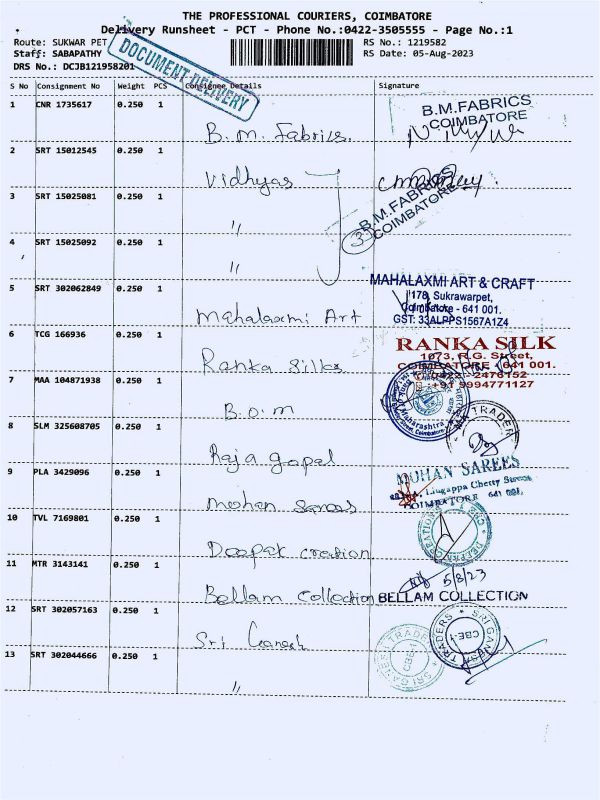 THE PROFESSIONAL COURIERS, COIMBATORE
Delivery Runsheet - PCT - Phone No.:0422-3505555 - Page No.:1
Route: SUKWAR PET
RS No.: 1219582
Staff: SABAPATHY
RS Date: 05-Aug-2023
DRS No.: DCJB121958201
DOCUMENT DELIVERY
S No Consignment No Weight PCS Consignee Details Signature
1 CNR 1735617 0.250 1 B.M. Fabrics.
B.M.FABRICS
COIMBATORE
2 SRT 15012545 0.250 1 Vidhyas
3 SRT 15025081 0.250 1 "
B.M.FABRICS
COIMBATORE
3
4 SRT 15025092 0.250 1 "
5 SRT 302062849 0.250 1 Mahalaxmi Art
MAHALAXMI ART & CRAFT
178, Sukrawarpet,
Coimbatore - 641 001.
GST: 33ALPPS1567A1Z4
6 TCG 166936 0.250 1 Ranka Silks
RANKA SILK
1073, R.G. Street,
COIMBATORE - 641 001.
0422 - 2476152
+91 9994771127
7 MAA 104871938 0.250 1 B.O.M
Maharashtra
8 SLM 325608705 0.250 1 Raja gopal
TRADER
9 PLA 3429096 0.250 1 Mohan Sarees
MOHAN SAREES
Lingappa Chetty Street
COIMBATORE 641 001.
10 TVL 7169801 0.250 1 Deepak creation
DEEPAK CREATION
11 MTR 3143141 0.250 1 Bellam Collection
5/8/23
BELLAM COLLECTION
12 SRT 302057163 0.250 1 Sri Ganesh
SRI GANESH TRADERS
CBE-1
13 SRT 302044666 0.250 1 "
SRI GANESH TRADERS
CBE-1